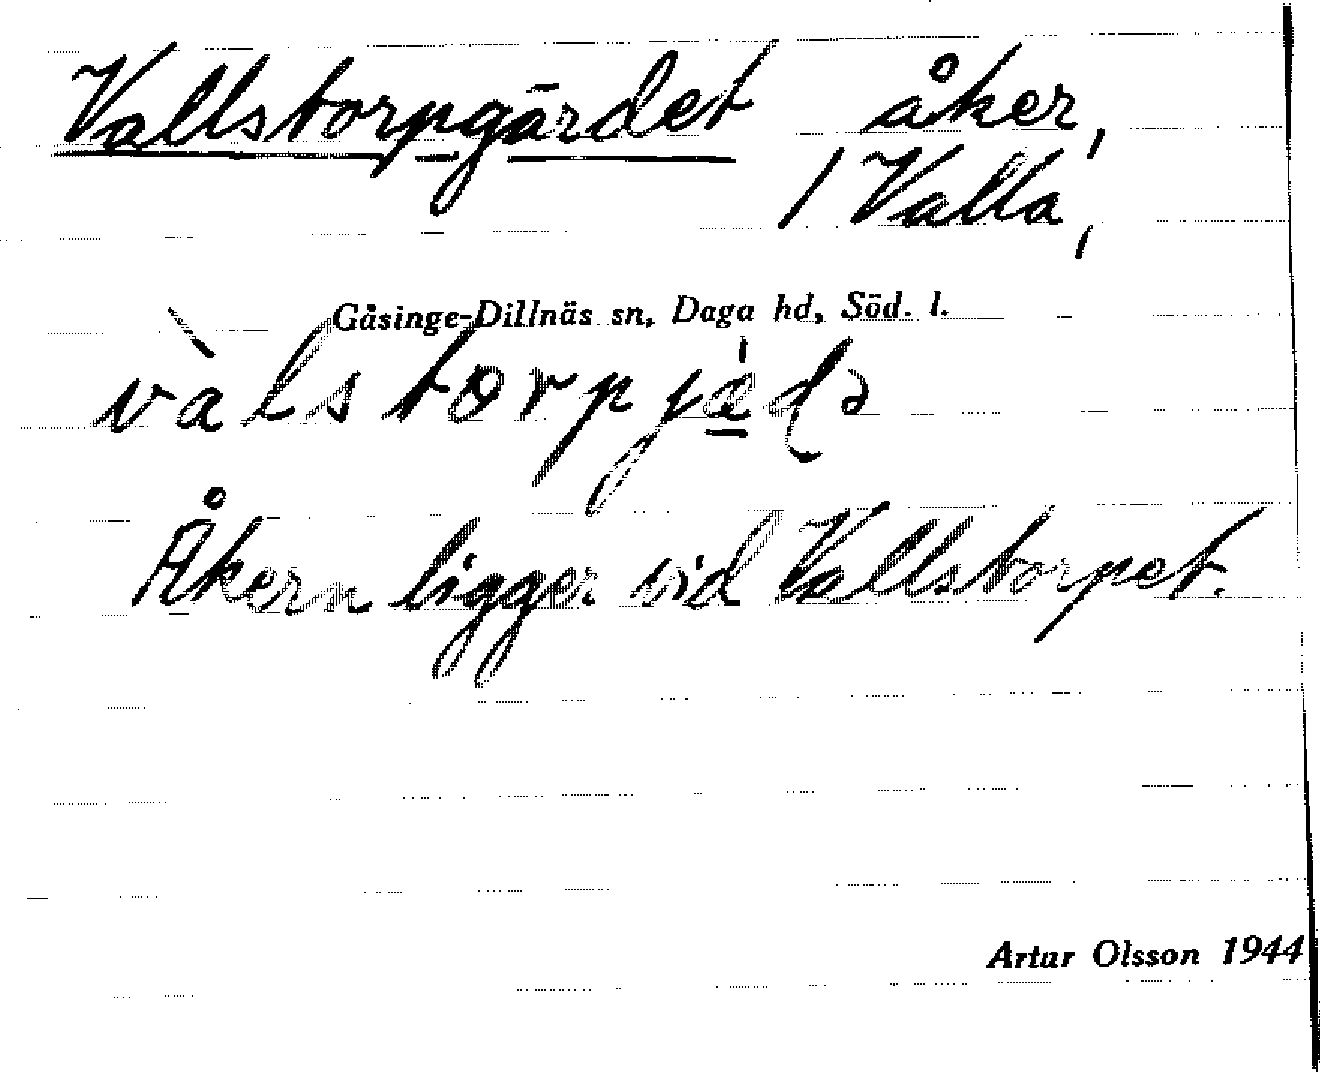 Vallstorpgärdet åker,
/ Valla,
Gåsinge-Dillnäs sn, Daga hd, Söd. l.
Åkern ligger vid Vallstorpet.
Artur Olsson 1944